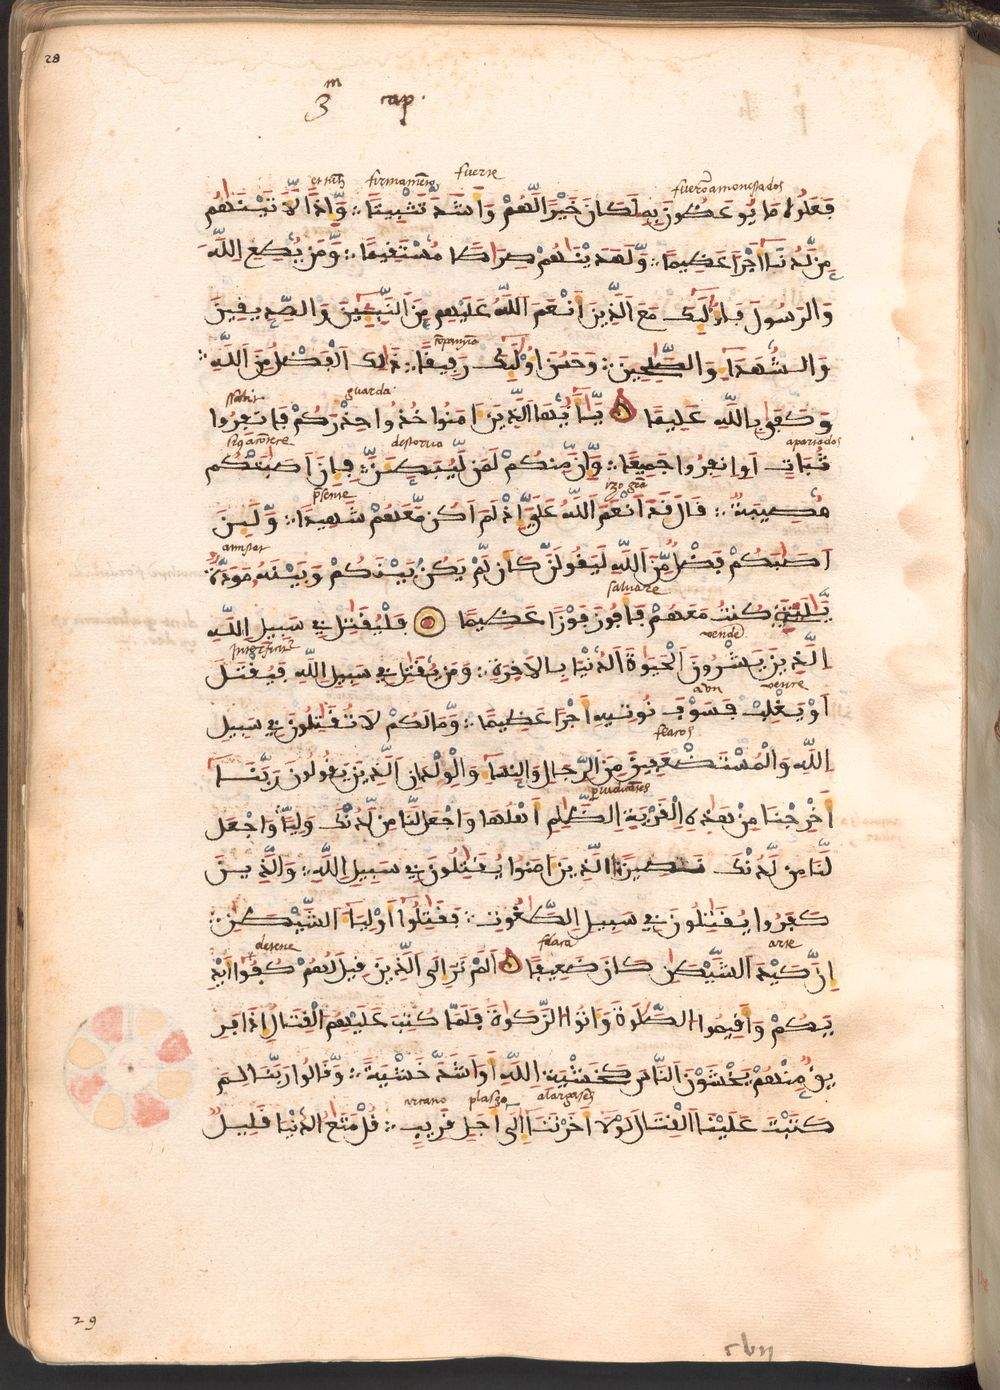 28
3m cap.
fuerõ amonestados firmamẽto fuerte
فعلوا ما يوعظون به لكان خيرا لهم واشد تثبيتا ؞ واذا لاتينهم
من لدنا اجرا عظيما ؞ ولهدينهم صراطا مستقيما ؞ ومن يطع الله
والرسول فاولئك مع الذين انعم الله عليهم من النبيين والصديقين
والشهدا والصلحين ؞ وحسن اولئك رفيقا ؞ ذلك الفضل من الله ؞
guarda
وكفى بالله عليما يايها الذين امنوا خذوا حذركم فانفروا
apartados destorua
ثبات او انفروا جميعا ؞ وان منكم لمن ليبطين ؞ فان اصبتكم
مصيبة ؞ قال قد انعم الله علي اذ لم اكن معهم شهيدا ؞ ولين
اصبكم فضل من الله ليقولن كان لم يكن بينكم وبينه مودة
saluare
يليتني كنت معهم فافوز فوزا عظيما فليقتل في سبيل الله
vende
الذين يشرون الحيوة الدنيا بالاخرة ؞ ومن يقتل في سبيل الله فيقتل
او يغلب فسوف نوتيه اجرا عظيما ؞ وما لكم لا تقتلون في سبيل
flacos
الله والمستضعفين من الرجال والنسا والولدان الذين يقولون ربنا
اخرجنا من هذه القرية الظلم اهلها واجعل لنا من لدنك وليا واجعل
لنا من لدنك نصيرا الذين امنوا يقتلون في سبيل الله ؞ والذين
كفروا يقتلون في سبيل الطغوت ؞ فقتلوا اوليا الشيطن ؞
arte flaca detene
ان كيد الشيطن كان ضعيفا الم تر الى الذين قيل لهم كفوا ايد
يكم واقيموا الصلوة واتوا الزكوة فلما كتب عليهم القتال اذا فر
يق منهم يخشون الناس كخشية الله او اشد خشية ؞ وقالوا ربنا لم
alargases plazo
كتبت علينا القتال لولا اخرتنا الى اجل قريب ؞ قل متع الدنيا قليل
29